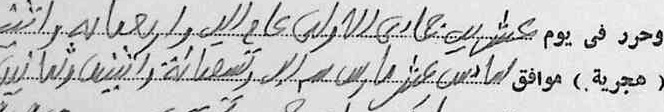 وحرر فى يوم عشرين جمادى الاولى عام الف واربعمائة واثنين
( هجرية . ) موافق سادس عشر مارس سنة الف وتسعمائة واثنين وثمانين